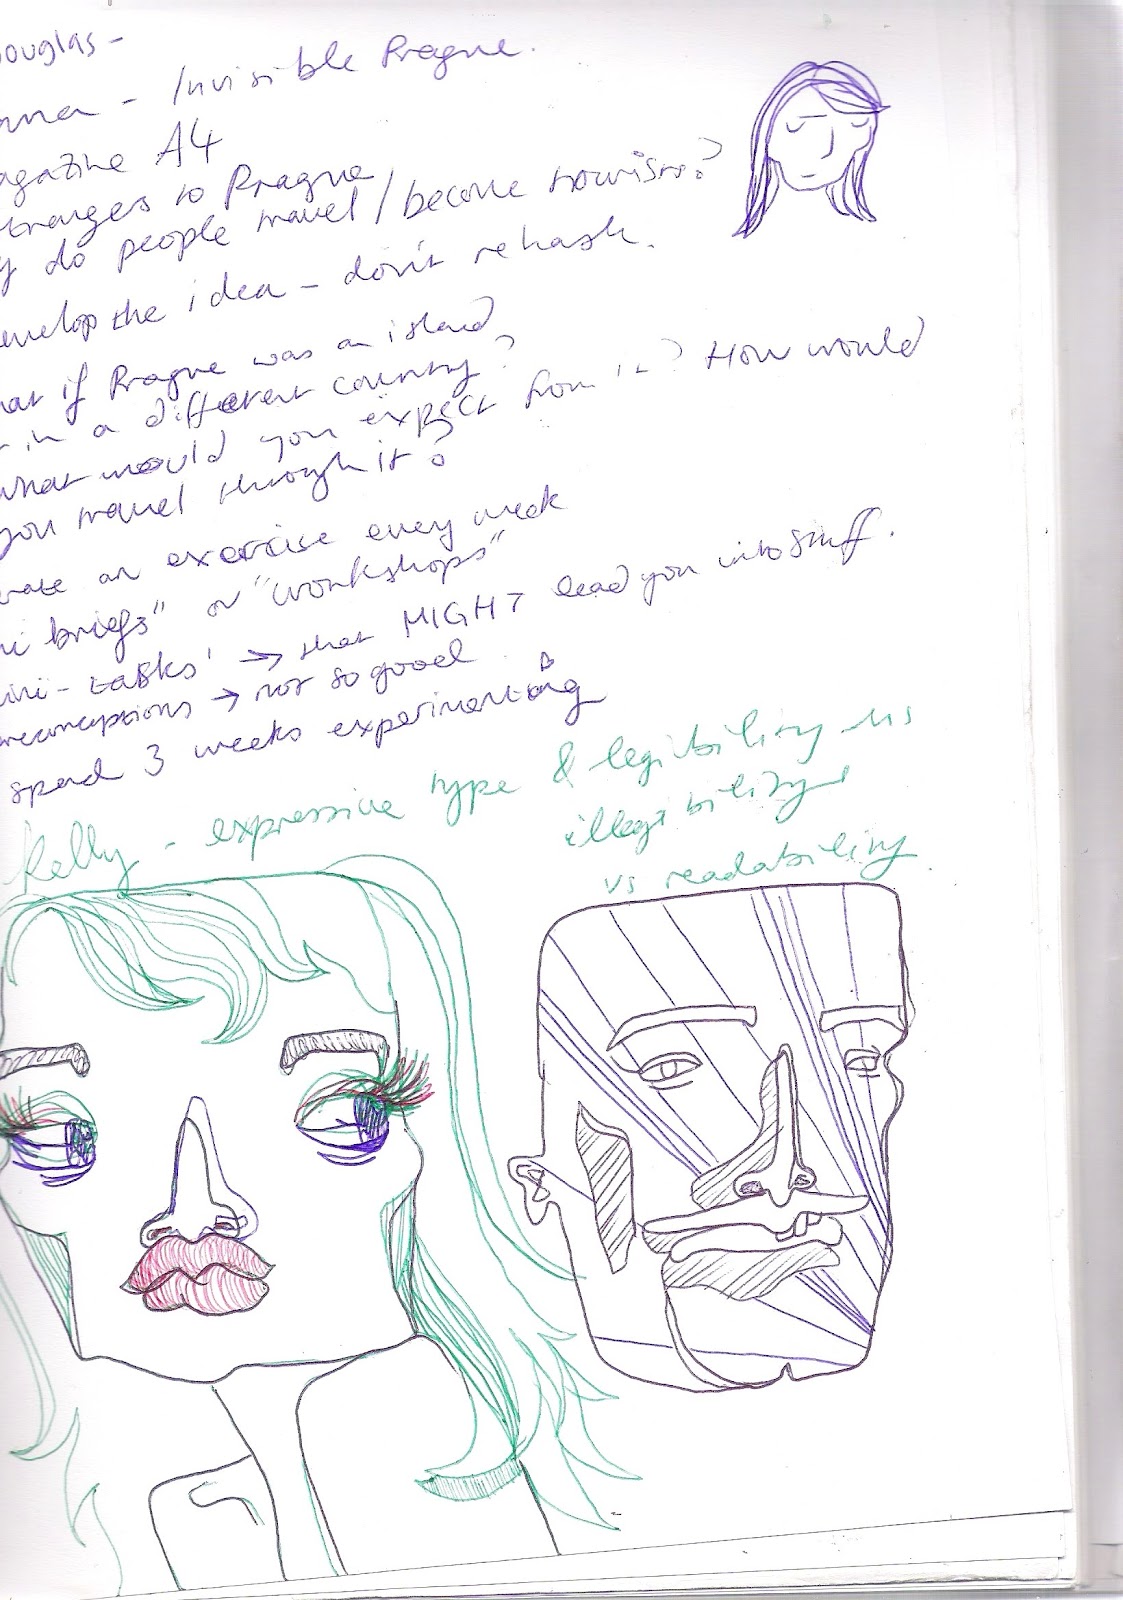 Douglas -
- Invisible Prague.
agazine A4
to Prague
y do people travel / become tourists?
evelop the idea - don't rehash.
hat if Prague was an island
r in a different country?
what would you expect from it? How would
you travel through it?
eate an exercise every week
ni briefs" or "workshops"
ini-tasks' → that MIGHT lead you into stuff.
reconceptions → not so good
spend 3 weeks experimenting
Kelly - expressive type & legibility vs
illegibility
vs readability